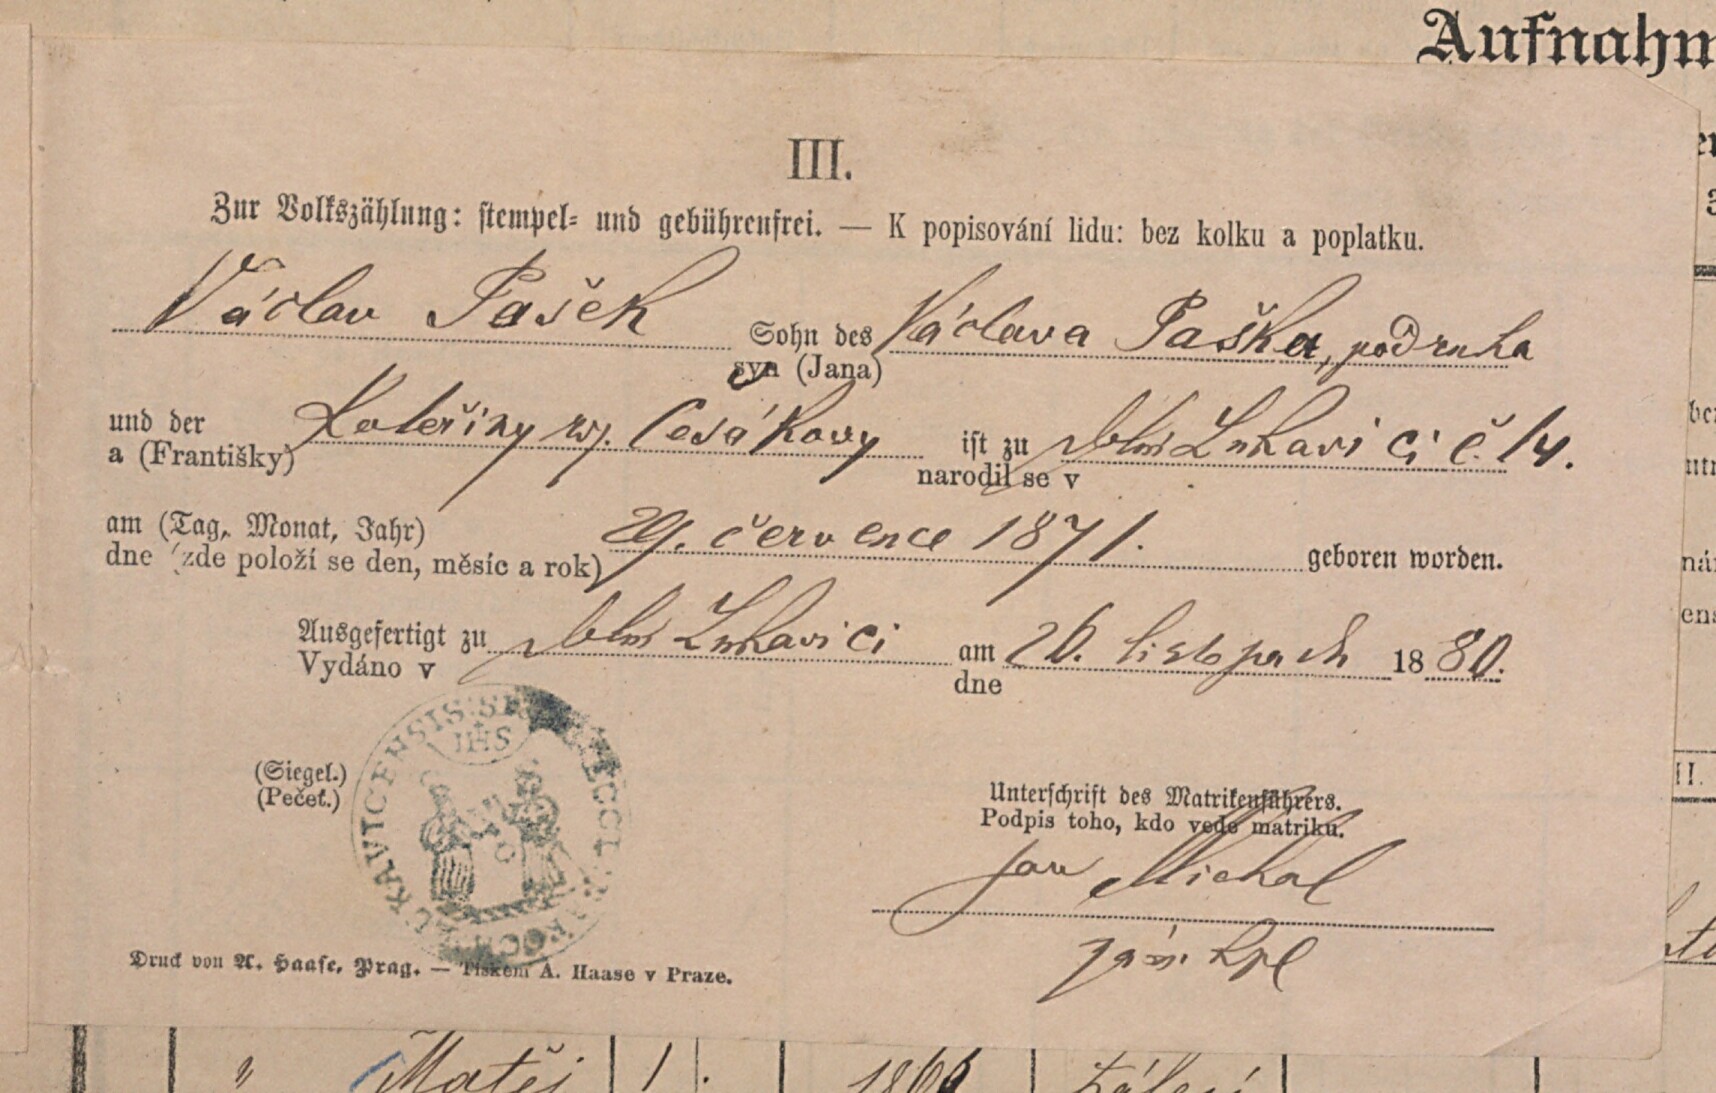 Aufnahm
III.
Zur Volkszählung: stempel- und gebührenfrei. — K popisování lidu: bez kolku a poplatku.
Václav Pašek Sohn des Václava Paška, podruha
syn (Jana)
und der Kateřiny roz. Cesákovy ist zu Lukavici č. 14.
a (Františky) narodil se v
am (Tag, Monat, Jahr) 29. července 1871.
dne (zde položí se den, měsíc a rok) geboren worden.
Ausgefertigt zu Lukavici am 26. listopadu 1880.
Vydáno v dne
IHS
(Siegel.)
(Pečeť.)
Unterschrift des Matrikenführers.
Podpis toho, kdo vede matriku.
Jan Michal
Druck von A. Haase, Prag. — Tiskem A. Haase v Praze.
" Matěj 1